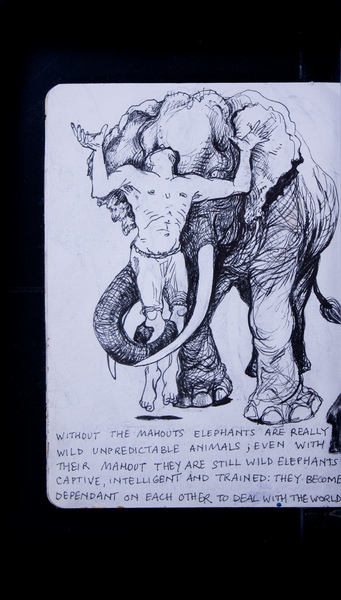 WITHOUT THE MAHOUTS ELEPHANTS ARE REALLY
WILD UNPREDICTABLE ANIMALS ; EVEN WITH
THEIR MAHOUT THEY ARE STILL WILD ELEPHANTS
CAPTIVE, INTELLIGENT AND TRAINED: THEY BECOME
DEPENDANT ON EACH OTHER TO DEAL WITH THE WORLD